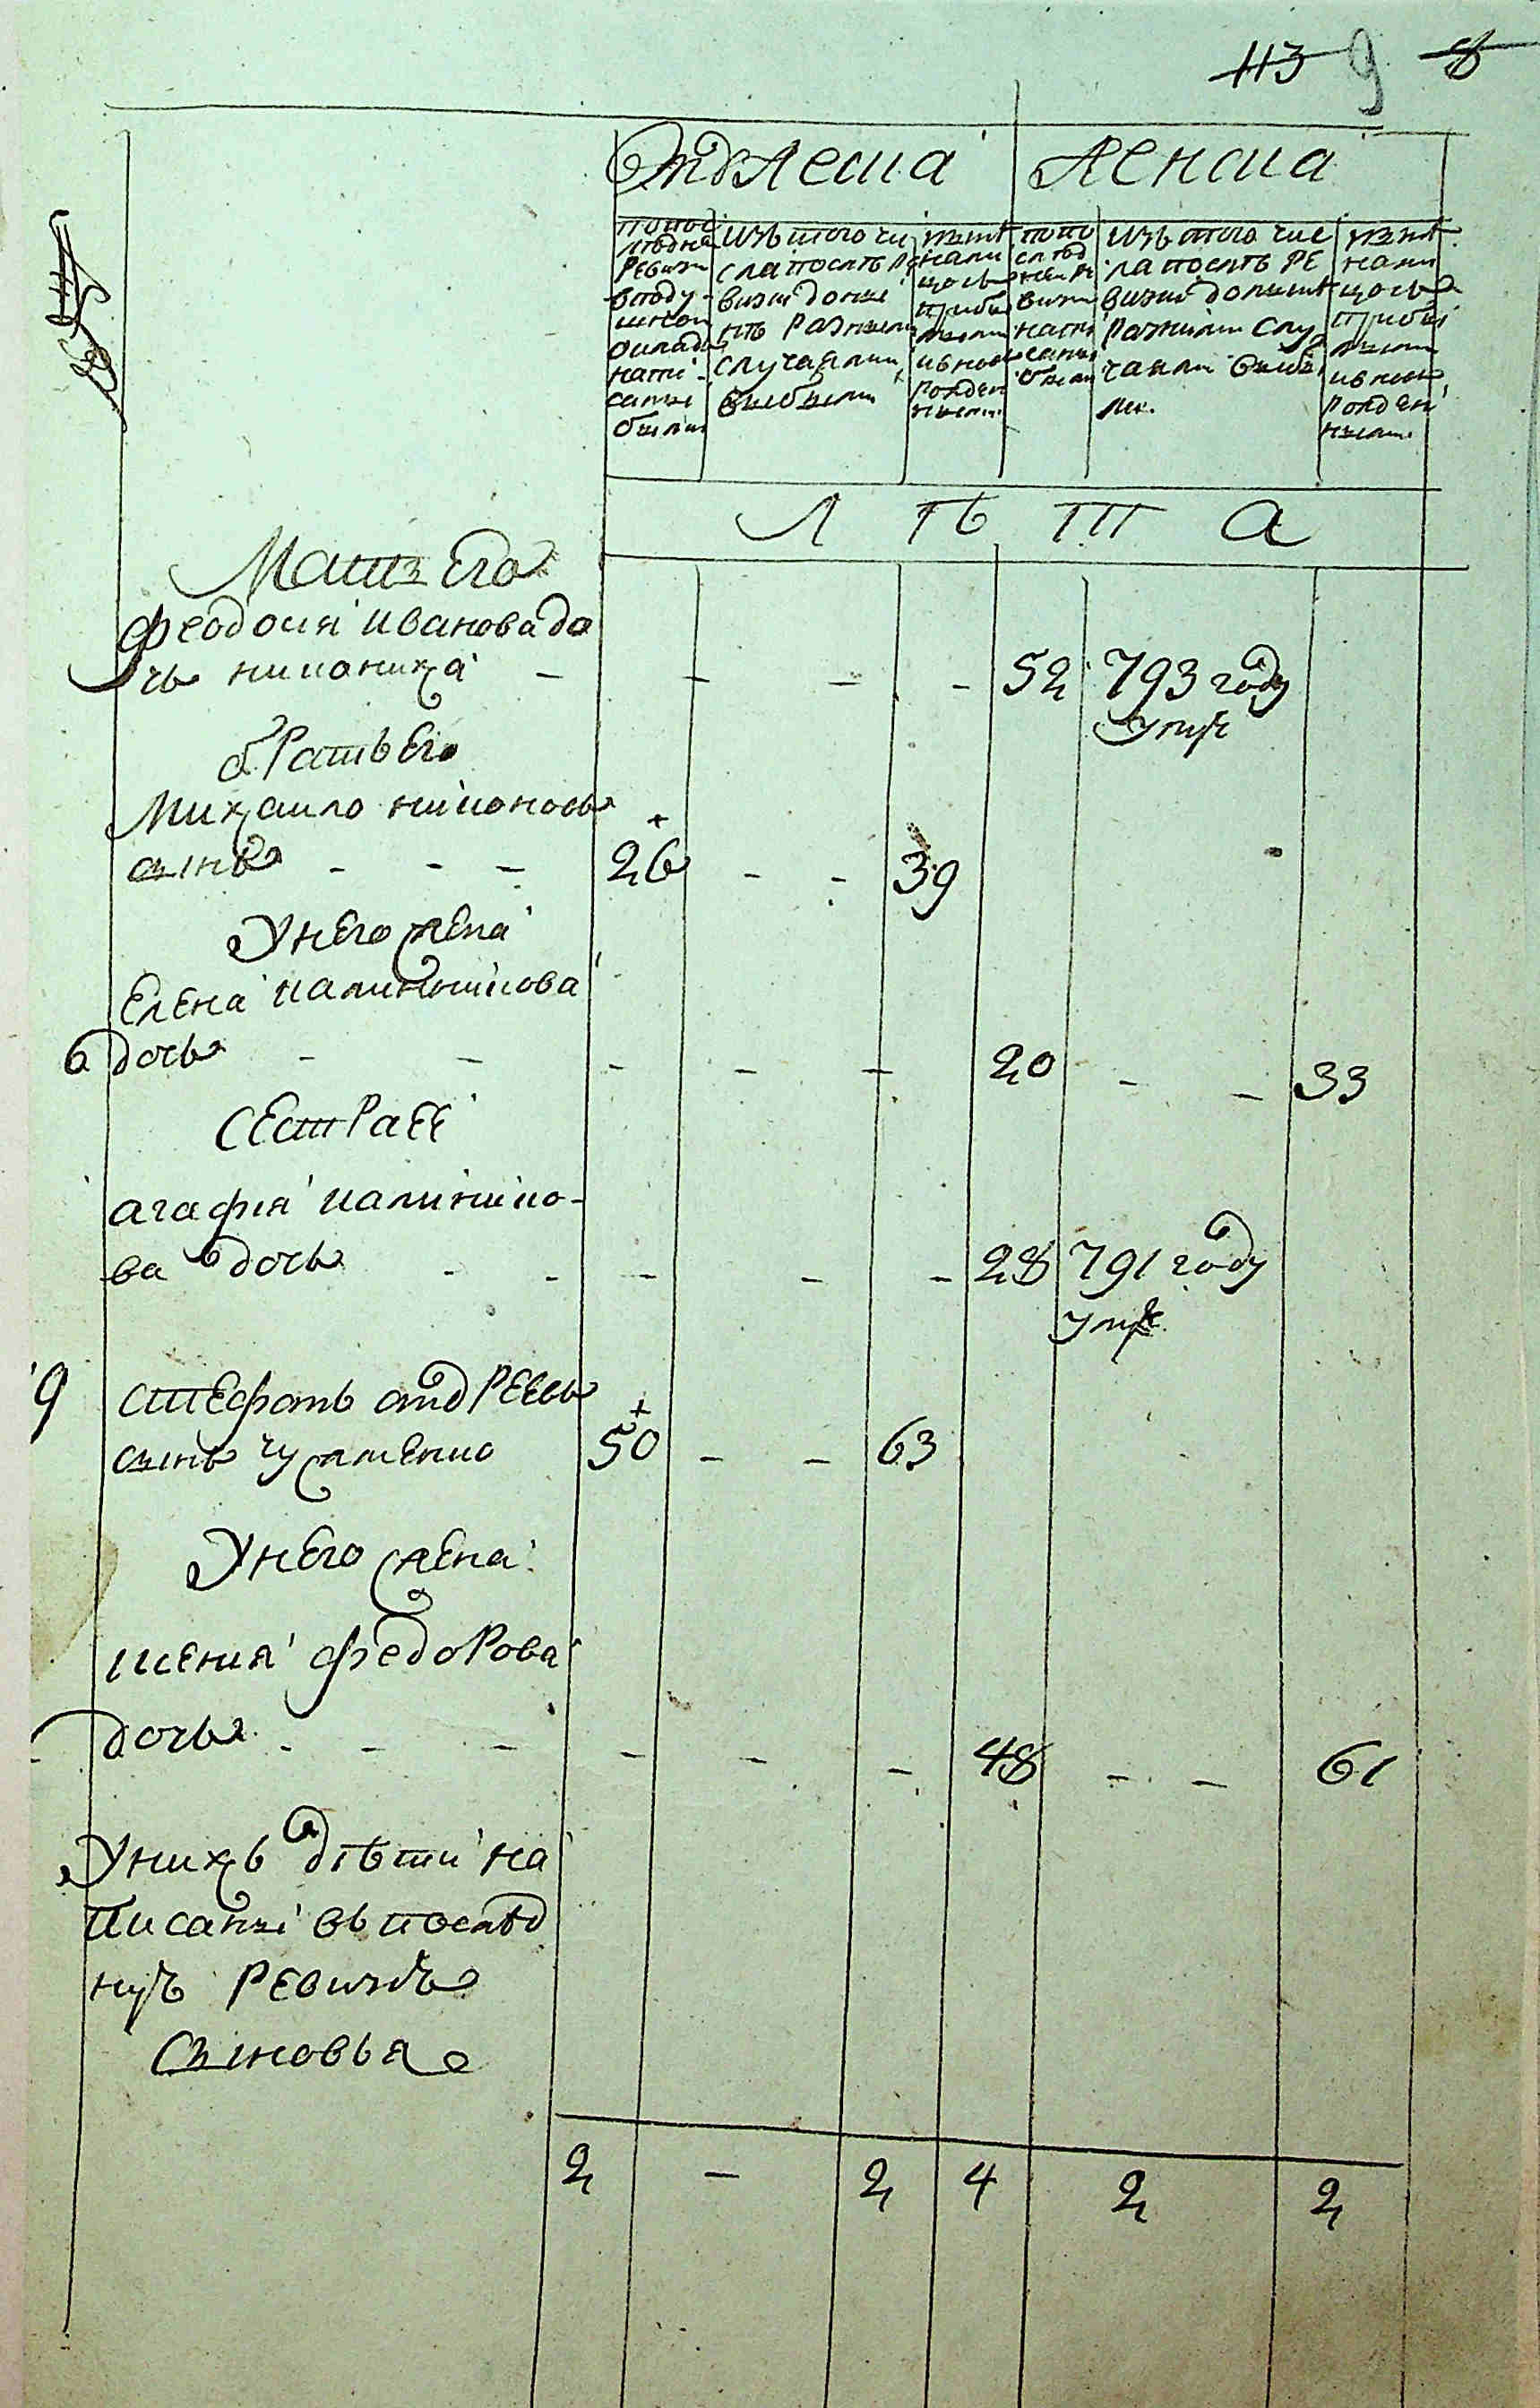 113 9 8
Мужеска Женска
попос
лѣдне
ревизи
вподу-
шном
окладѣ
напи-
саны
были
изъ того чи
сла послѣ ре
визии доны
нѣ разными
случаями
выбыли
нынѣ
нали
цость
прибы
лыми
ивново
рожден
ными
попо
слѣд
ней ре
визии
напи
саны
были
изъ того чис
ла послѣ ре
визии донынѣ
разными слу
чаями выбы
ли.
нынѣ
нали
цость
прибы
лыми
ивново
рожден
ными
Л Ѣ Т А
Мать его
феодосия иванова до
чь никониха - - - - 52 793 году
умре
братъ его
Михаило никоновъ
сынъ - - - 26 - - 39
У него жена
елена калиникова
дочь - - - - - 20 - - 33
сестра ее
агафия калинико-
ва дочь - - - - - 28 791 году
умре
9 стефанъ андреевъ
сынъ 50 - - 63
У него жена
ксения федорова
дочь - - - - - - 48 - - 61
У нихъ дѣти на
писаны въ послѣд
нуѣ ревизиѣ
сыновья
2 - 2 4 2 2